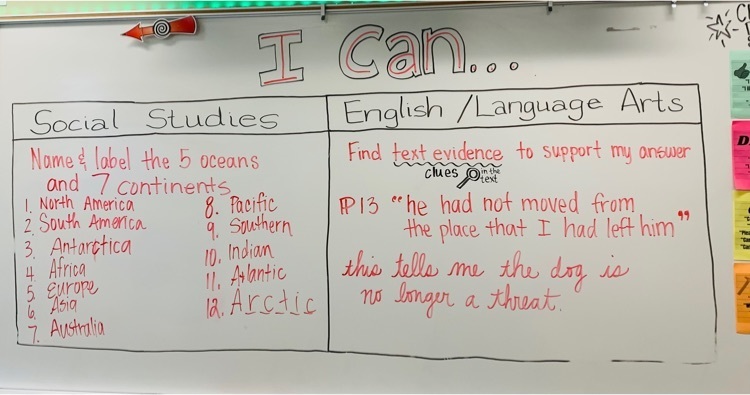 I Can...
Social Studies
Name & label the 5 oceans
and 7 continents
1. North America
2. South America
3. Antarctica
4. Africa
5. Europe
6. Asia
7. Australia
8. Pacific
9. Southern
10. Indian
11. Atlantic
12. Arctic
English/Language Arts
Find text evidence to support my answer
clues in the
text
P13 "he had not moved from
the place that I had left him"
this tells me the dog is
no longer a threat.